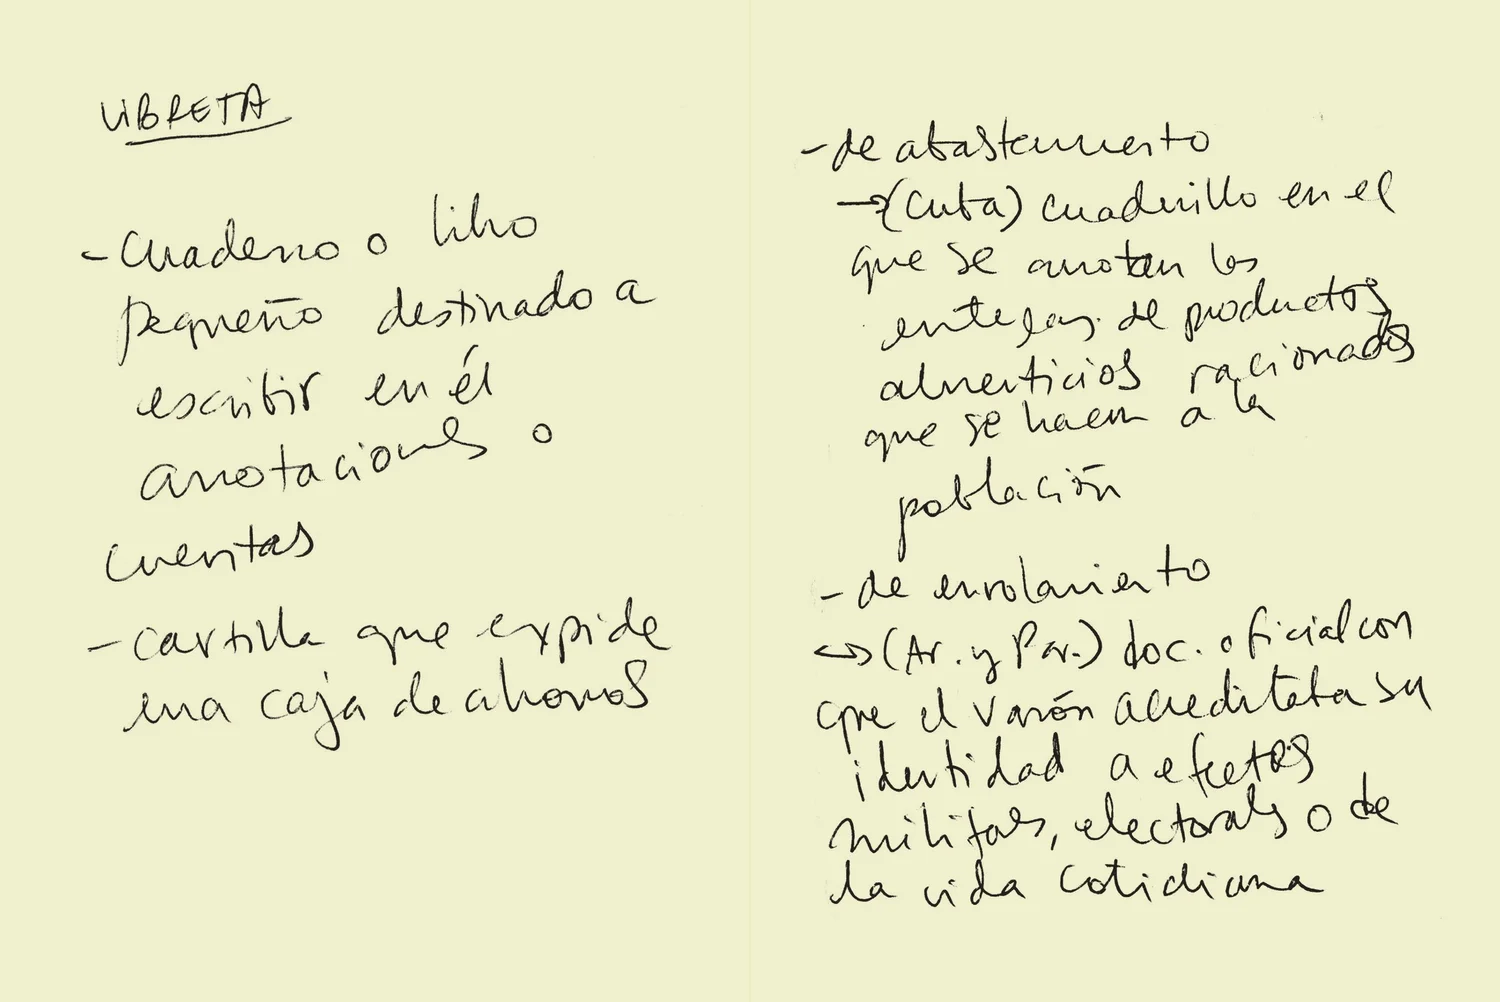 LIBRETA
- Cuaderno o libro
pequeño destinado a
escribir en él
anotaciones o
cuentas
- cartilla que expide
una caja de ahorros
- de abastecimiento
→ (Cuba) cuadernillo en el
que se anotan las
entregas de productos
alimenticios racionados
que se hacen a la
población
- de enrolamiento
↔ (Ar. y Par.) doc. oficial con
que el varón acreditaba su
identidad a efectos
militares, electorales o de
la vida cotidiana